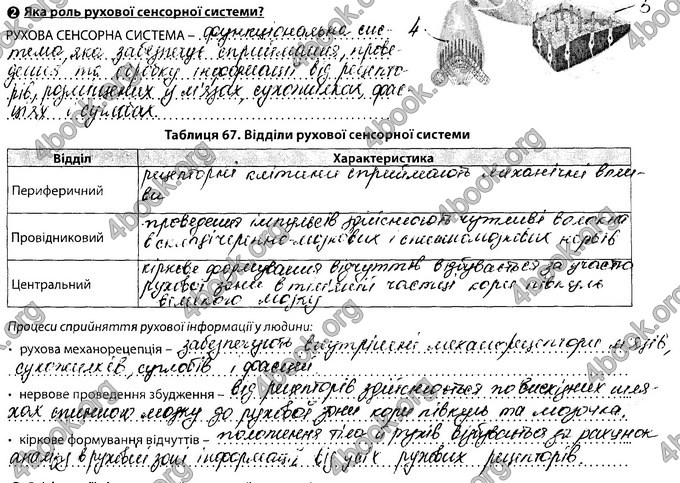 2 Яка роль рухової сенсорної системи?
РУХОВА СЕНСОРНА СИСТЕМА – функціональна сис-
тема, яка забезпечує сприймання, прове-
дення та обробку інформації від рецепто-
рів, розміщених у м'язах, сухожилках, фас-
ціях і суглобах.
4
5
Таблиця 67. Відділи рухової сенсорної системи
Відділ Характеристика
Периферичний рецепторні клітини сприймають механічні впли-
ви
Провідниковий проведення імпульсів здійснюють чутливі волокна
в складі черепно-мозкових і спинномозкових нервів
Центральний кіркове формування відчуттів відбувається за участю
рухової зони в тім'яній частці кори півкуль
великого мозку
Процеси сприйняття рухової інформації у людини:
• рухова механорецепція – забезпечують внутрішні механорецептори м'язів,
сухожилків, суглобів і фасцій
• нервове проведення збудження – від рецепторів здійснюється по висхідних шля-
хах спинного мозку до рухової зони кори півкуль та мозочка.
• кіркове формування відчуттів – положення тіла й рухів відбувається за рахунок
аналізу в руховій зоні інформації від усіх рухових рецепторів.
4book.org
4book.org
4book.org
4book.org
4book.org
4book.org